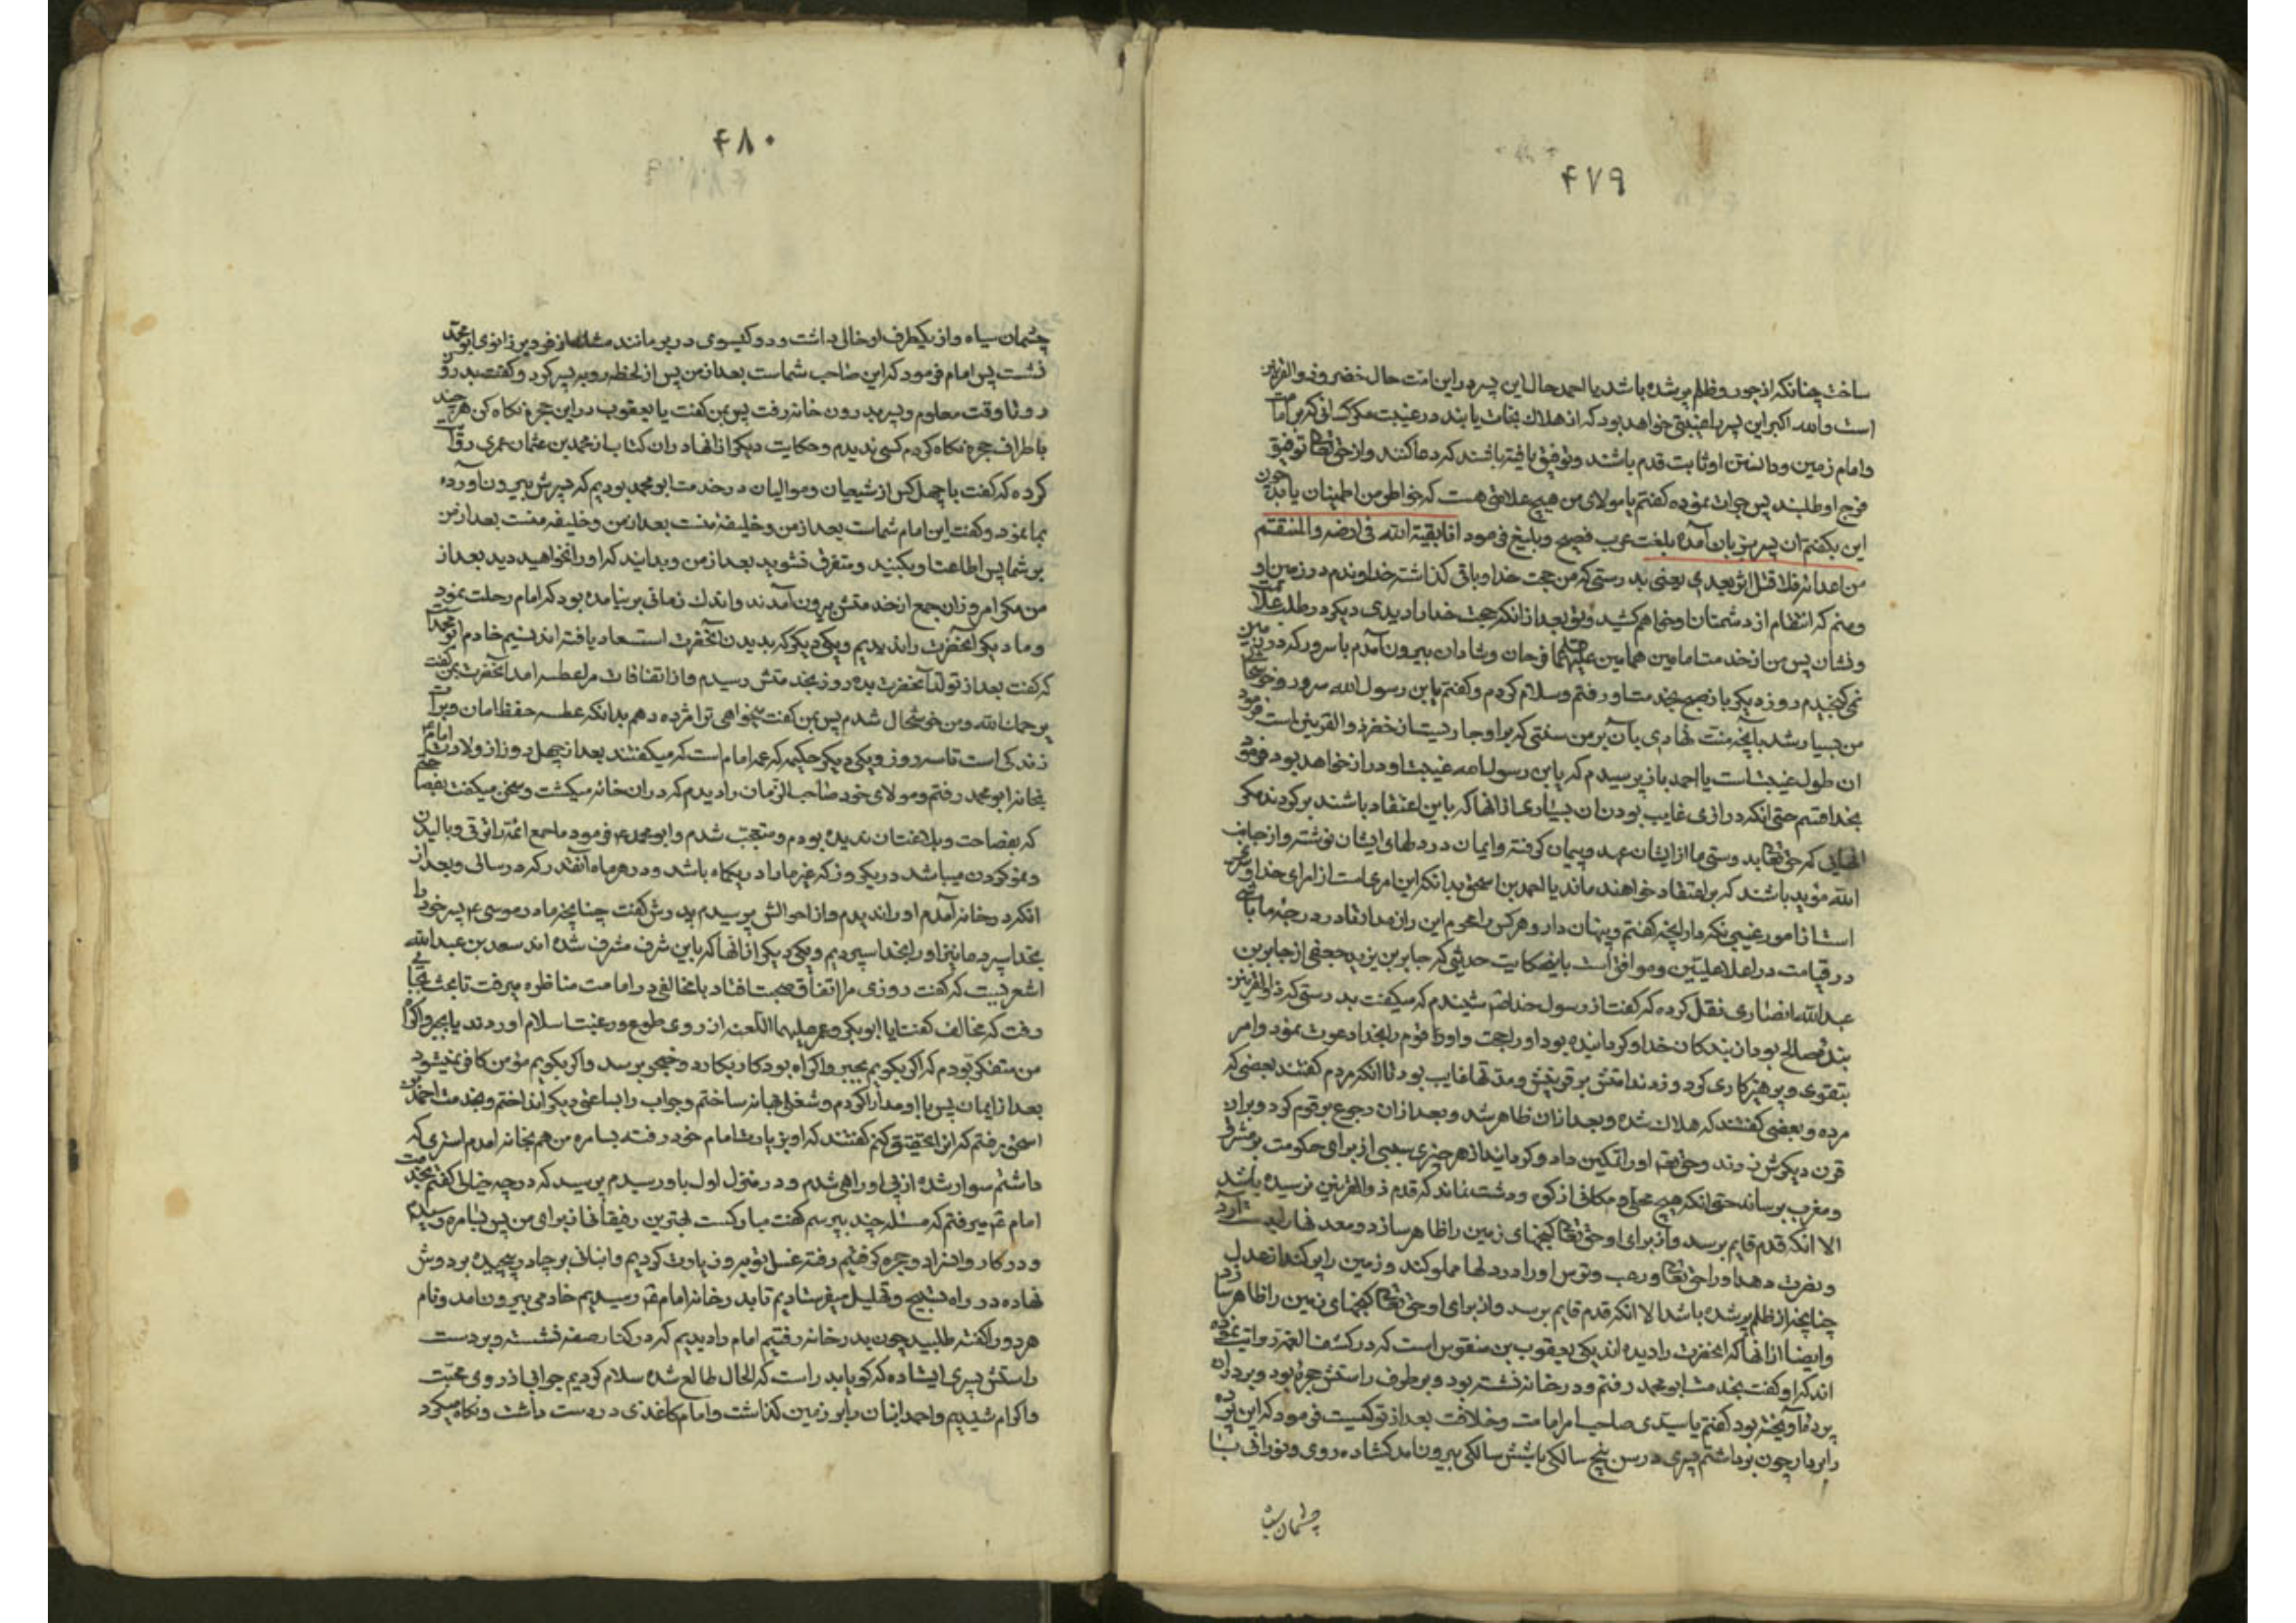 ۴۷۹
ساخت چنانکه از جور و ظلم پر شده باشد یا احمد حال این پسر در این امت حال خضر و ذو القرنین
است والله اکبر این پسر را غیبتی خواهد بود که از هلاک نجات یابند در غیبت مگر کسانی که بر امامت
و امام زمین و دانستن او ثابت قدم باشند و توفیق یافته باشند که دعا کنند و از حق تعالی توفیق
فرج او طلبند پس جرات نموده گفتم یا مولای من هیچ علامتی هست که خواطر من اطمینان یابد چون
این بگفتم آن پسر بزبان آمده بلغت عرب فصیح و بلیغ فرمود انا بقیة الله فی ارضه والمنتقم
من اعدائه فلا اثر بعدی یعنی بدرستی که من حجت خدا و باقی گذاشته خداوندم در زمین او
و منم که انتقام از دشمنان او خواهم کشید و تو بعد از آنکه حجت خدا را دیدی دیگر در طلب علامت
و نشان پس من از خدمت امامین همامین علیهما فرحان و شادان بیرون آمدم با سرور که در زمین
نمی گنجیدم روز دیگر باز صبح بخدمت او رفتم و سلام کردم و گفتم یا بن رسول الله سرور و خوشحالی
من بسیار شد بآنچه منت نهادی بآن بر من سنتی که بر او جاریست از خضر و ذو القرنین است فرمود
آن طول غیبت است یا احمد باز پرسیدم که یا بن رسول الله غیبت او دراز خواهد بود فرمود
بخدا قسم حتی آنکه در ازی غایب بودن آن بسیاری از آنها که باین اعتقاد باشند برگردند مگر
آنهایی که حق تعالی بدوستی ما از ایشان عهد و پیمان گرفته و ایمان در دلهای ایشان نوشته و از جانب
الله مؤید باشند که بر اعتقاد خواهند ماند یا احمد بن اسحق بدانکه این امری است از امرای خدا و سری
است از امور غیبی نگه دار آنچه گفتم و پنهان دار و هر کس را محرم این راز مدان تا در درجه ما باشی
در قیامت در اعلا علیین و موافق است باین حکایت حدیثی که جابر بن یزید جعفی از جابر بن
عبدالله انصاری نقل کرده که گفت از رسول خدا ص شنیدم که میگفت بدرستی که ذو القرنین
بنده صالح بود از بندگان خدا و گردانیده بود او را حجت و او قوم را بخدا دعوت نمود و امر
بتقوی و پرهیزکاری کرد و زدند امتش بر قرینش و مدتها غایب بود تا آنکه مردم گفتند بعضی که
مرده و بعضی گفتند که هلاک شده و بعد از آن ظاهر شد و بعد از آن رجوع بر قوم کرد و بر آن
قرن دیگرش زدند و حق تعالی او را تمکین داد و گردانید از هر چیزی سببی از برای حکومت بر مشرق
و مغرب برساند حتی آنکه هیچ محلی و مکانی از کوه و دشت نماند که قدم ذو القرنین نرسیده باشد
الا آنکه قدم قایم برسد و از برای او حق تعالی گنجهای زمین را ظاهر سازد و معدنها را بدست آرد
و نصرت دهد او را حق تعالی و رعب و ترس او را در دلها مملو کند و زمین را پر کند از عدل
چنانچه از ظلم پر شده باشد الا آنکه قدم قایم برسد و از برای او حق تعالی گنجهای زمین را ظاهر سازد
و ایضا از آنها که آنحضرت را دیده اند یکی یعقوب بن منقوس است که در کشف الغمه روایت نموده
اند که او گفت بخدمت ابو محمد رفتم و در خانه نشسته بود و بر طرف راستش حجره بود و بر در آن
پرده آویخته بود گفتم یا سیدی صاحب امر امامت و خلافت بعد از تو کیست فرمود که این پرده
را بردار چون برداشتم پسری در سن پنج سالگی یا شش سالگی بیرون آمد گشاده روی و نورانی با
چشمان سیاه
۴۸۰
چشمان سیاه و از یکطرف او خالی داشت و دو گیسوی در بر مانند مشک از فر دیر زانوی ابو محمد
نشست پس امام فرمود که این صاحب شماست بعد از من پس از لحظه رو به پسر کرد و گفت بدر رو
رو تا وقت معلوم و پسر بدرون خانه رفت پس بمن گفت یا یعقوب در این حجره نگاه کن هر چند
باطراف حجره نگاه کردم کسی ندیدم و حکایت دیگر از آنها در آن کتاب از محمد بن عثمان عمری روایت
کرده که گفت با چهل کس از شیعیان و موالیان در خدمت ابو محمد بودیم که پسرش بیرون آورده
بما نمود و گفت این امام شماست بعد از من و خلیفه منست بعد از من و خلیفه منست بعد از من
بر شما پس اطاعت او بکنید و متفرق نشوید بعد از من و بدانید که او را نخواهید دید بعد از
من مگر امروز آن جمع از خدمتش بیرون آمدند و اندک زمانی بر نیامده بود که امام رحلت نمود
و ما دیگر آنحضرت را ندیدیم و یکی دیگر که بدیدن آنحضرت استسعاد یافته اند نسیم خادم ابو محمد است
که گفت بعد از تولد آنحضرت بده روز بخدمتش رسیدم و از اتفاقات مرا عطسه آمد آنحضرت بمن گفت
یرحمک الله و من خوشحال شدم پس بمن گفت میخواهی ترا مژده دهم بدانکه عطسه حفظ امان و برات
زندگی است تا سه روز و یکی دیگر حکیمه که عمه امام است که میگفتند بعد از چهل روز از ولادت امام
بخانه ابو محمد رفتم و مولای خود صاحب الزمان را دیدم که در آن خانه میگشت و سخن میگفت بفصاحتی
که بفصاحت و بلاغت آن ندیده بودم و متعجب شدم و ابو محمد ع فرمود ما جمع ائمه را ترقی و بالیدن
و نمو کردن میباشد در یک روز که غیر ما را در یکماه باشد و در هر ماه آنقدر که در سالی و بعد از
آنکه در خانه آمدم او را ندیدم و از احوالش پرسیدم پدرش گفت چنانچه مادر موسی ع پسر خود را
بخدا سپرد ما نیز او را بخدا سپردیم و یکی دیگر از آنها که باین شرف مشرف شده اند سعد بن عبدالله
اشعریست که گفت روزی مرا اتفاق صحبت افتاد با مخالفی در امامت مناظره میرفت تا بحث بجایی
رفت که مخالف گفت ایا ابوبکر و عمر علیهما اللعنه از روی طوع و رغبت اسلام آوردند یا بجبر و اکراه
من متفکر بودم که اگر بگویم بجبر و اکراه بود کار بکارد و خنجر برسد و اگر بگویم مؤمن کافر نمیشود
بعد از ایمان پس با او مدارا کردم و شغلی بهانه ساختم و جواب را بساعتی دیگر انداختم و بخدمت احمد بن
اسحق رفتم که از او تحقیق کنم گفتند که او بزیارت امام خود رفته بسامره من هم بخانه آمدم استری که
داشتم سوار شده از پی او راهی شدم و در منزل اول باو رسیدم پرسید که در چه خیالی گفتم بخدمت
امام ع میرفتم که مسئله چند بپرسم گفت مبارکست بهترین رفیقانی از برای من پس بسامره رسیدیم
و در کاروانسرا دو حجره گرفتیم رفته غسل توبه و زیارت کردیم و انبانی بر چادر پیچیده بر دوش
نهاده در راه تسبیح و تهلیل میفرستادیم تا بدر خانه امام ع رسیدیم خادمی بیرون آمد و نام
هر دو را گفته طلبید چون بدر خانه رفتیم امام را دیدیم که در کنار صفه نشسته و بر دست
راستش پسری ایستاده که گویا بدر است که الحال طالع شده سلام کردیم جوابی از روی محبت
و اکرام شنیدیم و احمد انبان را بر زمین گذاشت و امام کاغذی در دست داشت و نگاه میکرد